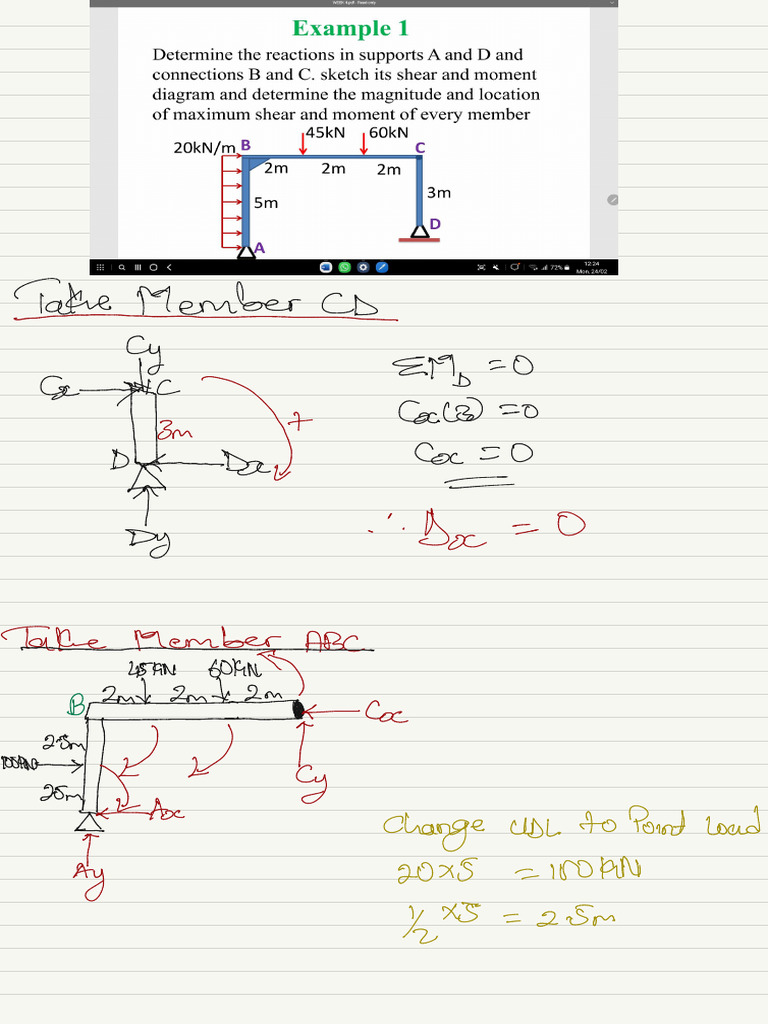 Example 1
Determine the reactions in supports A and D and
connections B and C. sketch its shear and moment
diagram and determine the magnitude and location
of maximum shear and moment of every member
45kN 60kN
20kN/m B C
2m 2m 2m
3m
5m
D
A
12:24
72%
Mon, 24/02
Take Member CD
Cy
Cx C
3m +
D Dx
Dy
ΣM_D = 0
Cx(3) = 0
Cx = 0
∴ Dx = 0
Take Member ABC
45kN 60kN
B 2m 2m 2m
Cx
2.5m
100kN
Cy
2.5m
Ax
Ay
Change UDL to Point Load
20×5 = 100kN
1/2 ×5 = 2.5m